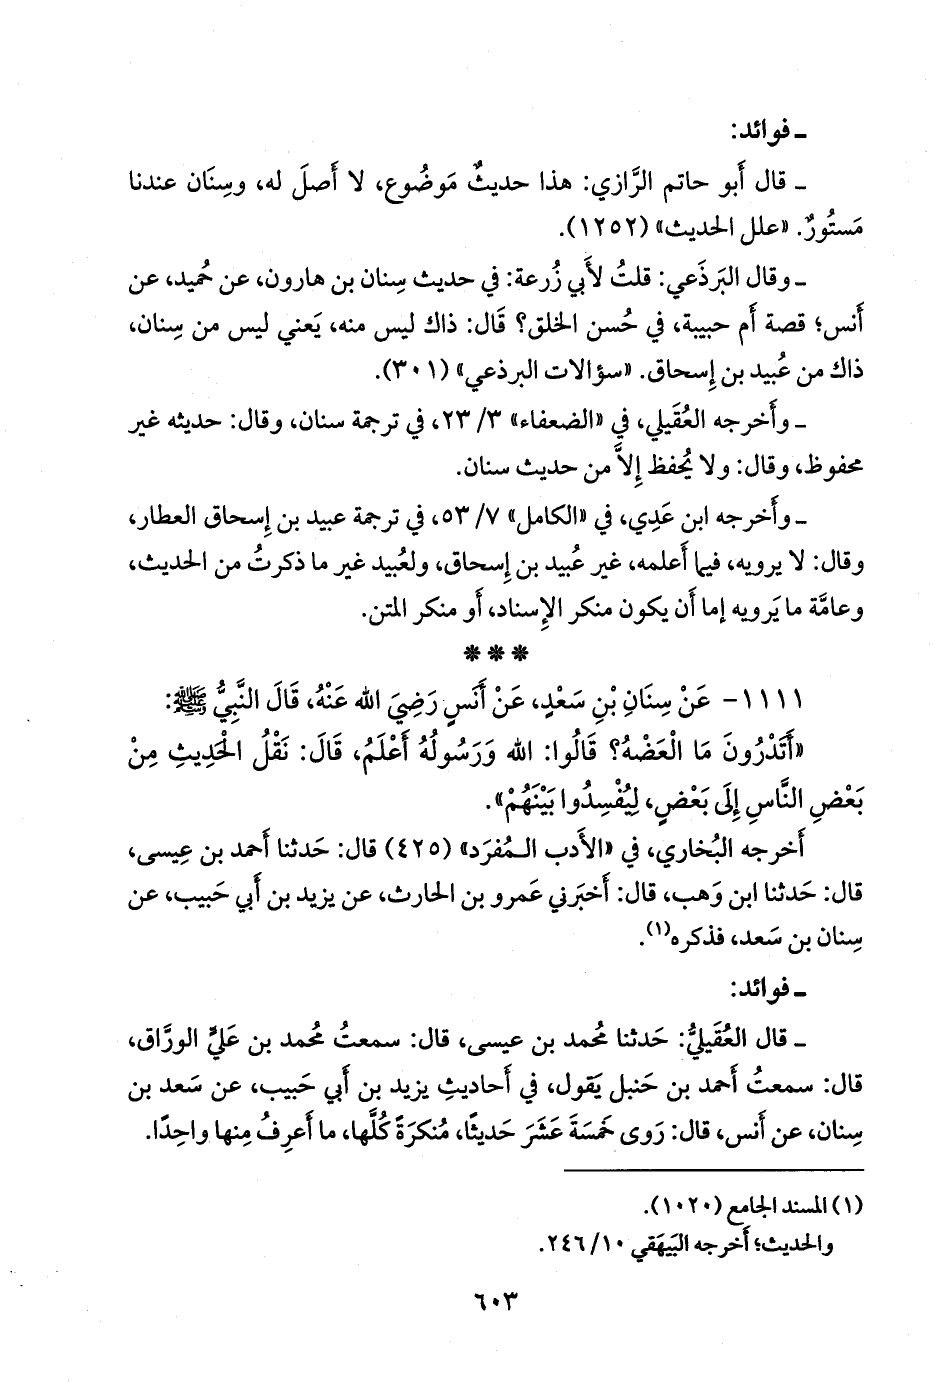 ـ فوائد:
ـ قال أَبو حاتم الرَّازي: هذا حديثٌ مَوضُوع، لا أَصلَ له، وسِنَان عندنا
مَستُورٌ. «علل الحديث» (١٢٥٢).
ـ وقال البَرذَعي: قلتُ لأَبي زُرعة: في حديث سِنان بن هارون، عن حُميد، عن
أَنس؛ قصة أُم حبيبة، في حُسن الخلق؟ قَال: ذاك ليس منه، يَعني ليس من سِنان،
ذاك من عُبيد بن إِسحاق. «سؤالات البرذعي» (٣٠١).
ـ وأَخرجه العُقَيلي، في «الضعفاء» ٣/ ٢٣، في ترجمة سنان، وقال: حديثه غير
محفوظ، وقال: ولا يُحفظ إِلاَّ من حديث سنان.
ـ وأَخرجه ابن عَدِي، في «الكامل» ٧/ ٥٣، في ترجمة عبيد بن إِسحاق العطار،
وقال: لا يرويه، فيما أَعلمه، غير عُبيد بن إِسحاق، ولعُبيد غير ما ذكرتُ من الحديث،
وعامَّة ما يَرويه إما أَن يكون منكر الإِسناد، أَو منكر المتن.
***
١١١١- عَنْ سِنَانِ بْنِ سَعْدٍ، عَنْ أَنَسٍ رَضِيَ الله عَنْهُ، قَالَ النَّبِيُّ ﷺ:
«أَتَدْرُونَ مَا الْعَضْهُ؟ قَالُوا: الله وَرَسُولُهُ أَعْلَمُ، قَالَ: نَقْلُ الْحَدِيثِ مِنْ
بَعْضِ النَّاسِ إِلَى بَعْضٍ، لِيُفْسِدُوا بَيْنَهُمْ».
أَخرجه البُخاري، في «الأَدب المُفرَد» (٤٢٥) قال: حَدثنا أَحمد بن عِيسى،
قال: حَدثنا ابن وَهب، قال: أَخبَرني عَمرو بن الحارث، عن يزيد بن أَبي حَبيب، عن
سِنان بن سَعد، فذكره(١).
ـ فوائد:
ـ قال العُقَيليُّ: حَدثنا مُحمد بن عيسى، قال: سمعتُ مُحمد بن عَليٍّ الورَّاق،
قال: سمعتُ أَحمد بن حَنبل يَقول، في أَحاديثِ يزيد بن أَبي حَبيب، عن سَعد بن
سِنان، عن أَنس، قال: رَوى خَمسَةَ عَشَرَ حَديثًا، مُنكرَةً كُلَّها، ما أَعرِفُ مِنها واحِدًا.
(١) المسند الجامع (١٠٢٠).
والحديث؛ أَخرجه البَيهَقي ١٠/ ٢٤٦.
٦٠٣